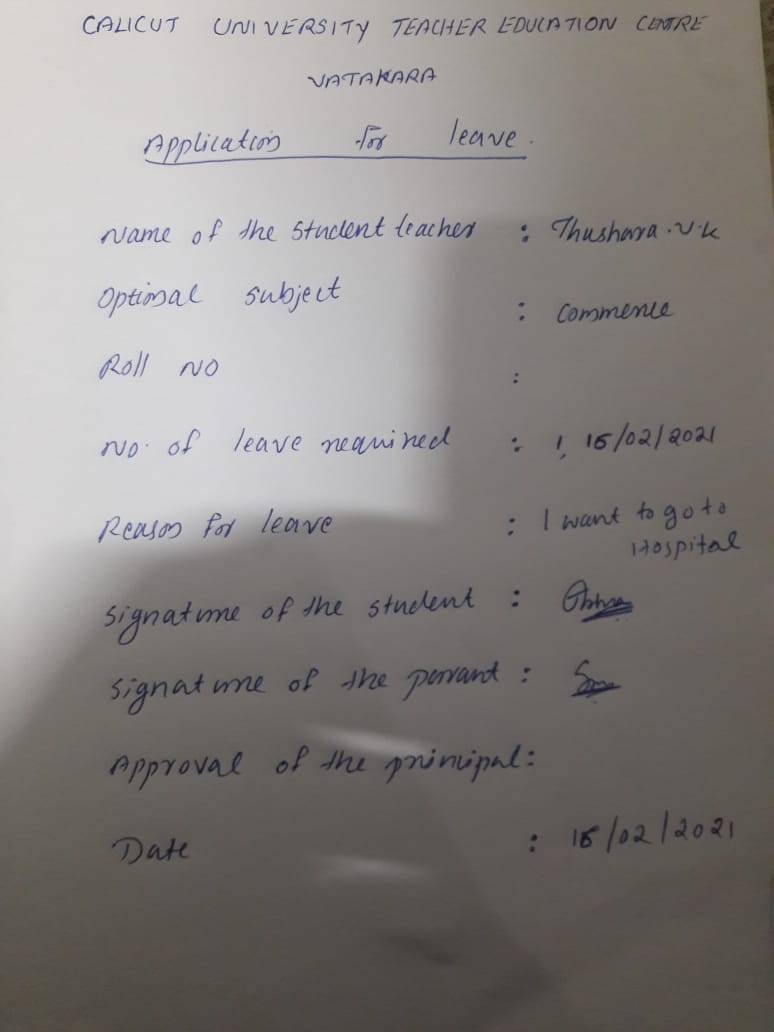 CALICUT UNIVERSITY TEACHER EDUCATION CENTRE
VATAKARA
Application For leave.
Name of the student teacher : Thushara.V.K
Optional subject : Commerce
Roll NO :
No. of leave required : 1, 15/02/2021
Reason for leave : I want to go to
Hospital
Signature of the student :
Signature of the perant :
Approval of the principal:
Date : 15/02/2021